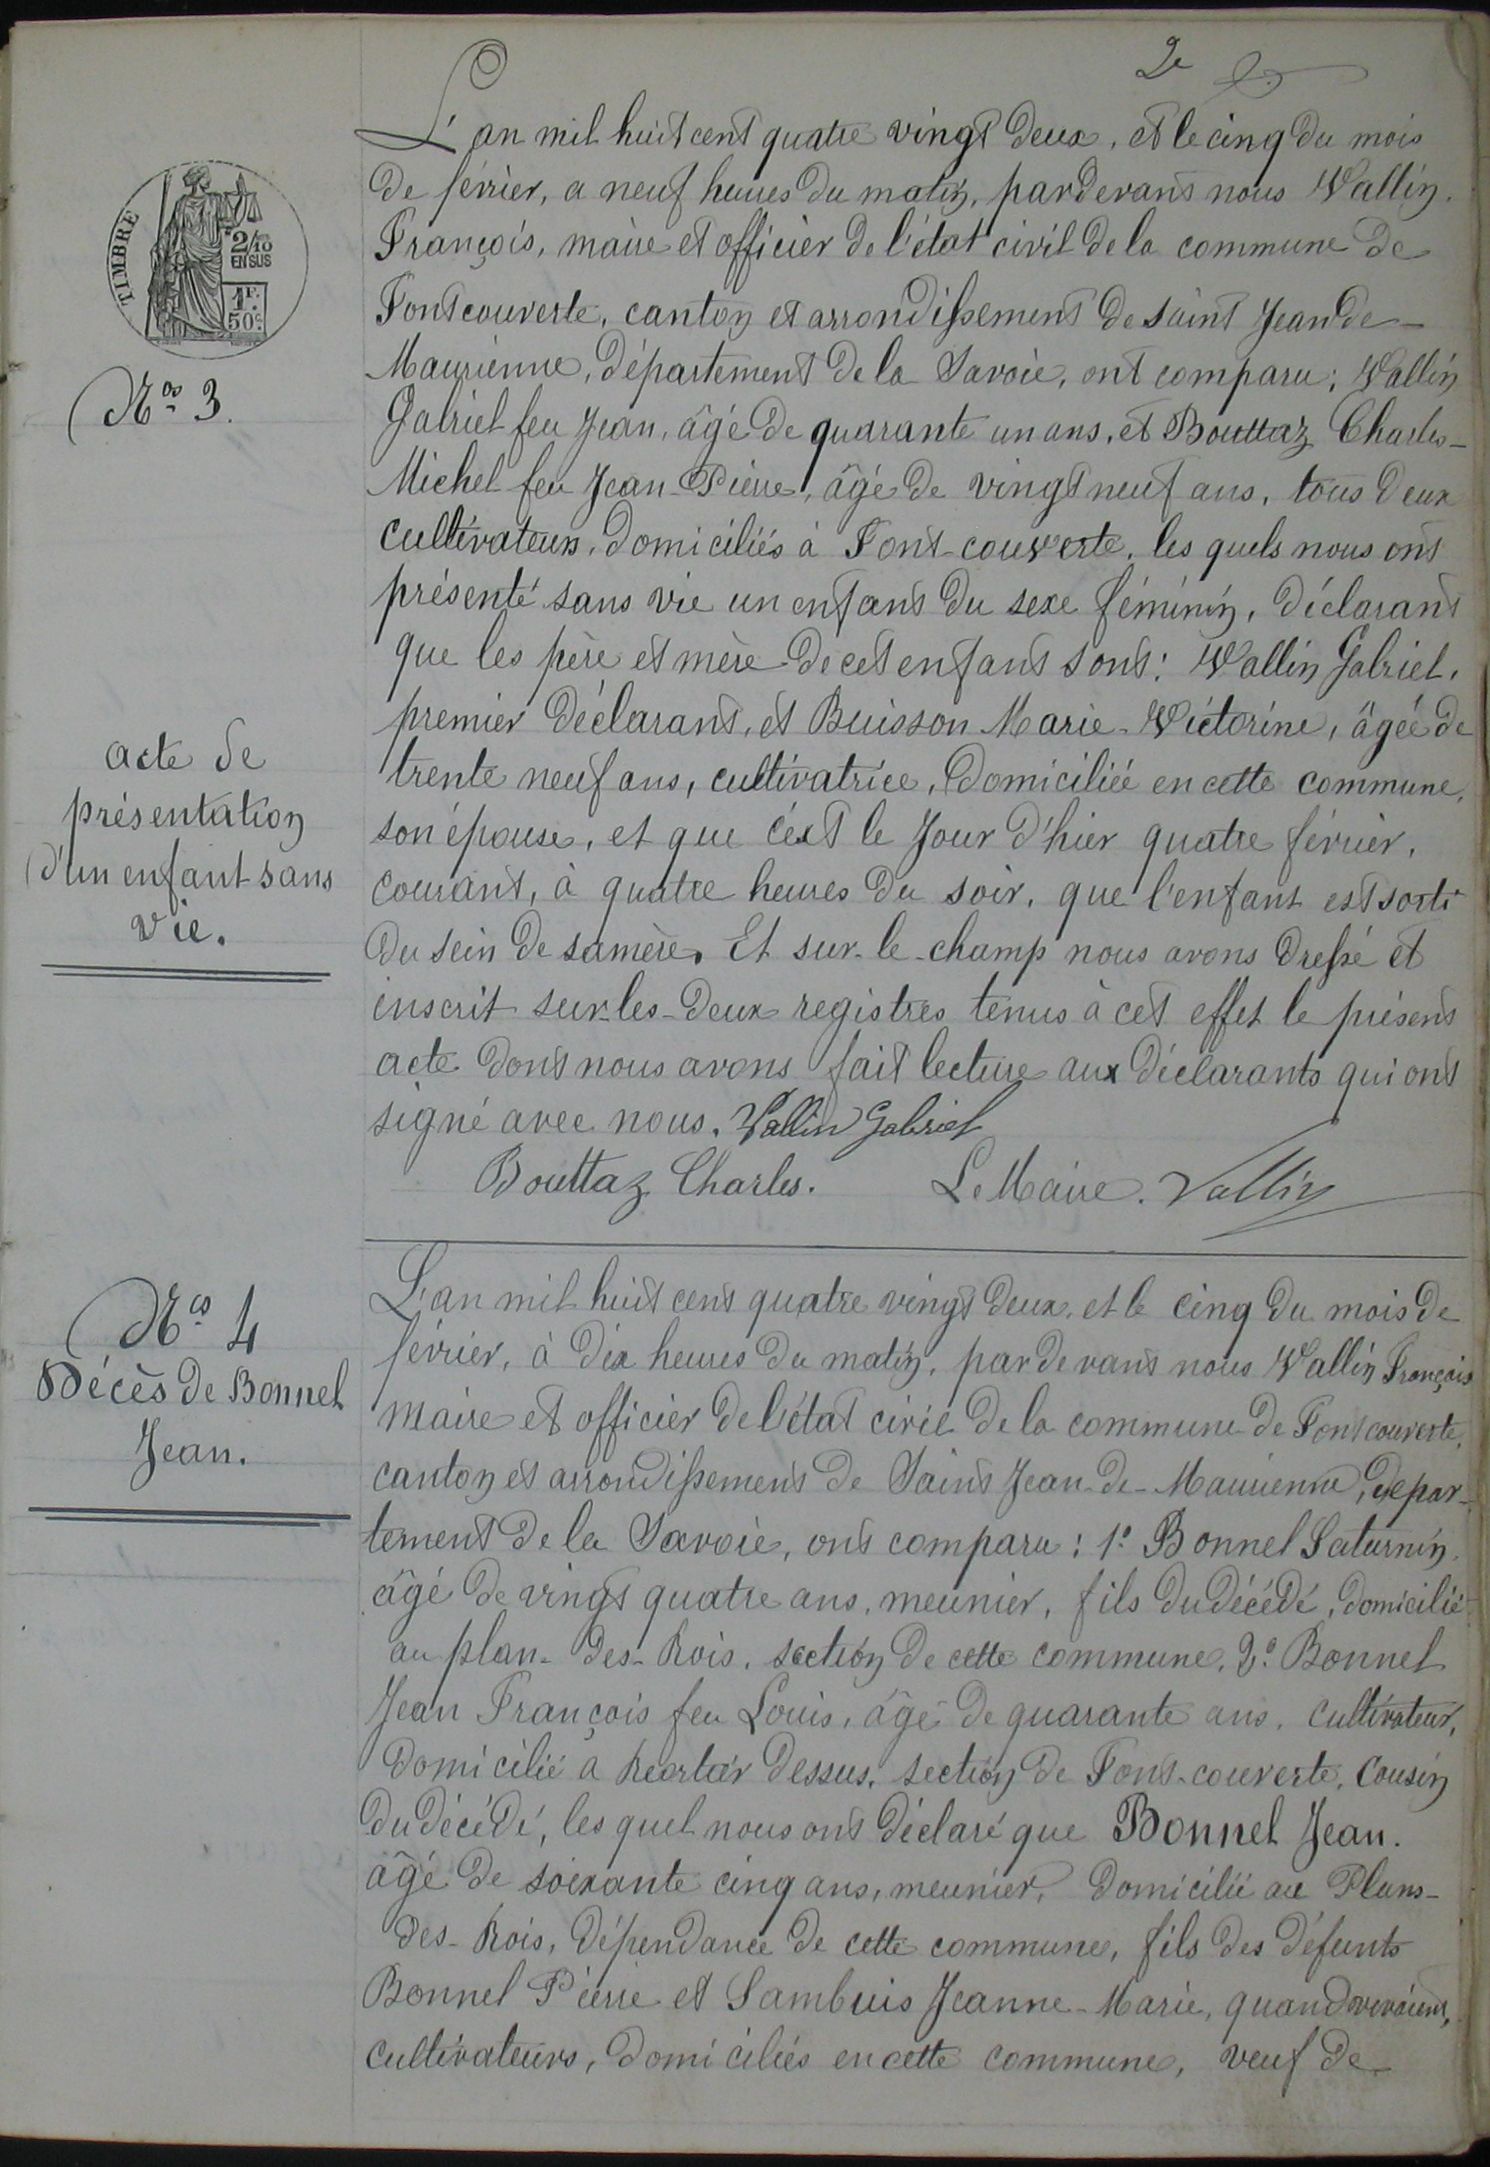 2e
L'an mil huit cent quatre vingt deux, et le cinq du mois
de février, a neuf heures du matin, pardevant nous Vallin
François, maire et officier de l'état civil de la commune de
Fontcouverte, canton et arrondissement de saint Jean de
Maurienne, département de la Savoie, ont comparu: Vallin
Gabriel feu Jean, âgé de quarante un ans, et Bouttaz Charles-
Michel feu Jean-Pierre, âgé de vingt neuf ans, tous deux
cultivateurs, domiciliés à Font-couverte, les quels nous ont
présenté sans vie un enfant du sexe féminin, déclarant
que les père et mère de cet enfant sont: Vallin Gabriel,
premier déclarant, et Buisson Marie-Victorine, âgée de
trente neuf ans, cultivatrice, domiciliée en cette commune,
son épouse, et que c'est le Jour d'hier quatre février,
courant, à quatre heures du soir, que l'enfant est sorti
du sein de sa mère. Et sur-le-champ nous avons dressé et
inscrit sur-les-deux registres tenus à cet effet le présent
acte dont nous avons fait lecture aux déclarants qui ont
signé avec nous. Vallin Gabriel
Bouttaz Charles. Le Maire. Vallin
TIMBRE
2/10
EN SUS
1F.
50c
Nos 3.
acte de
présentation
d'un enfant sans
vie.
Nos 4
Décès de Bonnel
Jean.
L'an mil huit cent quatre vingt deux, et le cinq du mois de
février, à dix heures du matin, par devant nous Vallin François
maire et officier de l'état civil de la commune de Fontcouverte,
canton et arrondissement de Saint Jean-de-Maurienne, dépar-
tement de la Savoie, ont comparu: 1° Bonnel Saturnin,
âgé de vingt quatre ans, meunier, fils du décédé, domicilié
au plan-des-Rois, section de cette commune, 2° Bonnel
Jean François feu Louis, âgé de quarante ans, cultivateur,
domicilié a dessus, section de Font-couverte, cousin
du décédé, les quel nous ont déclaré que Bonnel Jean.
âgé de soixante cinq ans, meunier, domicilié au Plans-
des-Rois, dépendance de cette commune, fils des défunts
Bonnel Pierre et Sambuis Jeanne-Marie, quand vivaient,
cultivateurs, domiciliés en cette commune, veuf de